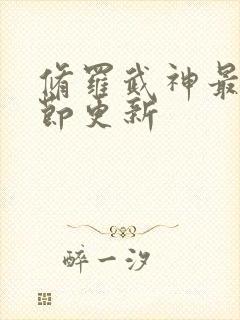 脩羅武神最
節更新
醉一汐